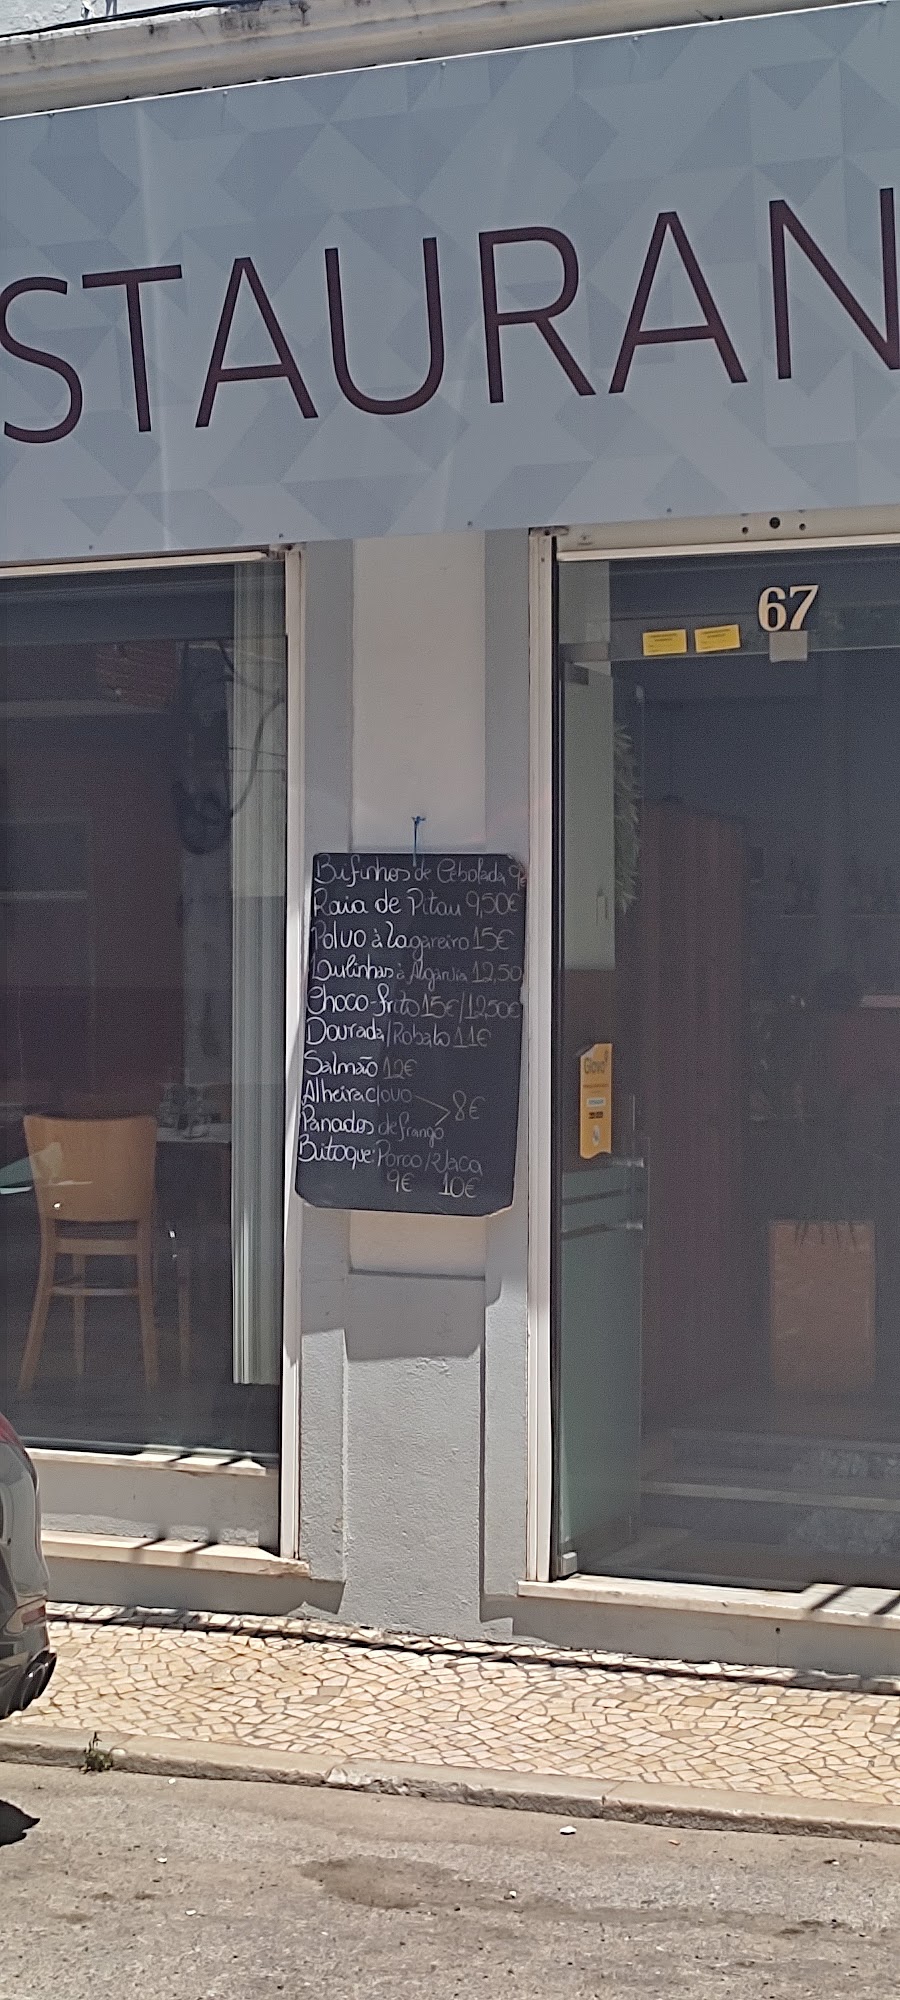 STAURAN
67
Bifinhos de Cebolada 9€
Raia de Pitau 9,50€
Polvo à Lagareiro 15€
à 12,50
Choco-frito 15€/12,50€
Dourada/Robalo 11€
Salmão 12€
Alheira c/ovo
8€
Panados de frango
Bitoque: Porco/Vaca
9€ 10€
Glovo